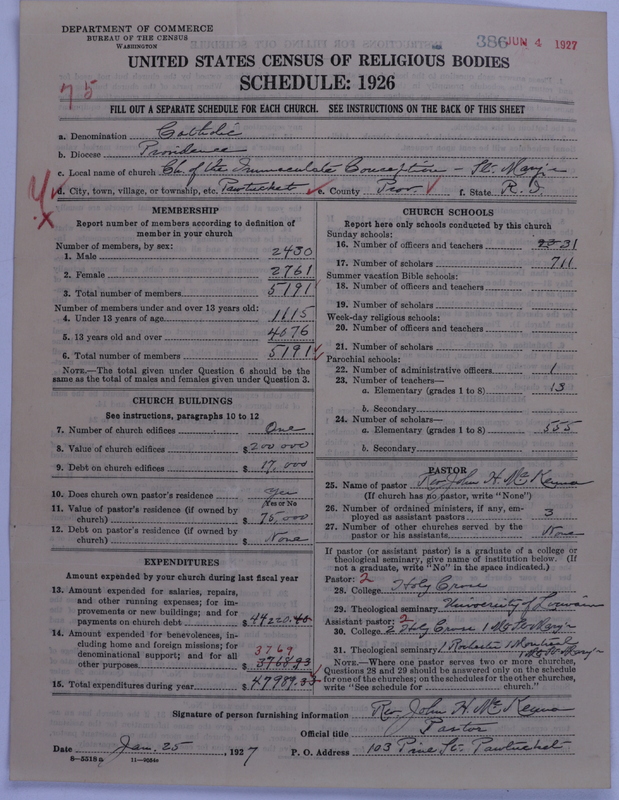 DEPARTMENT OF COMMERCE
BUREAU OF THE CENSUS
WASHINGTON
386 JUN 4 1927
UNITED STATES CENSUS OF RELIGIOUS BODIES
SCHEDULE: 1926
75
FILL OUT A SEPARATE SCHEDULE FOR EACH CHURCH. SEE INSTRUCTIONS ON THE BACK OF THIS SHEET
a. Denomination Catholic
b. Diocese Providence
c. Local name of church Ch. of the Immaculate Conception - St. Mary's
d. City, town, village, or township, etc. Pawtucket e. County Prov. f. State R.I.
MEMBERSHIP
Report number of members according to definition of
member in your church
Number of members, by sex:
1. Male 2430
2. Female 2761
3. Total number of members 5191
Number of members under and over 13 years old:
4. Under 13 years of age 1115
5. 13 years old and over 4076
6. Total number of members 5191
NOTE.—The total given under Question 6 should be the
same as the total of males and females given under Question 3.
CHURCH BUILDINGS
See instructions, paragraphs 10 to 12
7. Number of church edifices One
8. Value of church edifices $200 000
9. Debt on church edifices $17,000
10. Does church own pastor's residence Yes
(Yes or No
11. Value of pastor's residence (if owned by
church) $75,000
12. Debt on pastor's residence (if owned by
church) $None
EXPENDITURES
Amount expended by your church during last fiscal year
13. Amount expended for salaries, repairs,
and other running expenses; for im-
provements or new buildings; and for
payments on church debt $44220.40
14. Amount expended for benevolences, in-
cluding home and foreign missions; for
denominational support; and for all 3769
other purposes $3768.93
15. Total expenditures during year $47989.33
CHURCH SCHOOLS
Report here only schools conducted by this church
Sunday schools:
16. Number of officers and teachers 31
17. Number of scholars 711
Summer vacation Bible schools:
18. Number of officers and teachers
19. Number of scholars
Week-day religious schools:
20. Number of officers and teachers
21. Number of scholars
Parochial schools:
22. Number of administrative officers 1
23. Number of teachers—
a. Elementary (grades 1 to 8) 13
b. Secondary
24. Number of scholars—
a. Elementary (grades 1 to 8) 555
b. Secondary
PASTOR
25. Name of pastor Rev. John H. McKenna
(If church has no pastor, write "None")
26. Number of ordained ministers, if any, em-
ployed as assistant pastors 3
27. Number of other churches served by the
pastor or his assistants None
If pastor (or assistant pastor) is a graduate of a college or
theological seminary, give name of institution below. (If
not a graduate, write "No" in the space indicated.)
Pastor: 2
28. College Holy Cross
29. Theological seminary University of Louvain
Assistant pastor: 2
30. College 2 Holy Cross 1 Mt St Mary's
31. Theological seminary 1 Rochester 1 Montreal
1 Mt St Mary's
NOTE.—Where one pastor serves two or more churches,
Questions 28 and 29 should be answered only on the schedule
for one of the churches; on the schedules for the other churches,
write "See schedule for church."
Signature of person furnishing information Rev. John H. McKenna
Official title Pastor
Date Jan. 25, 1927 P. O. Address 103 Pine St. Pawtucket
8-5518a 11-9054